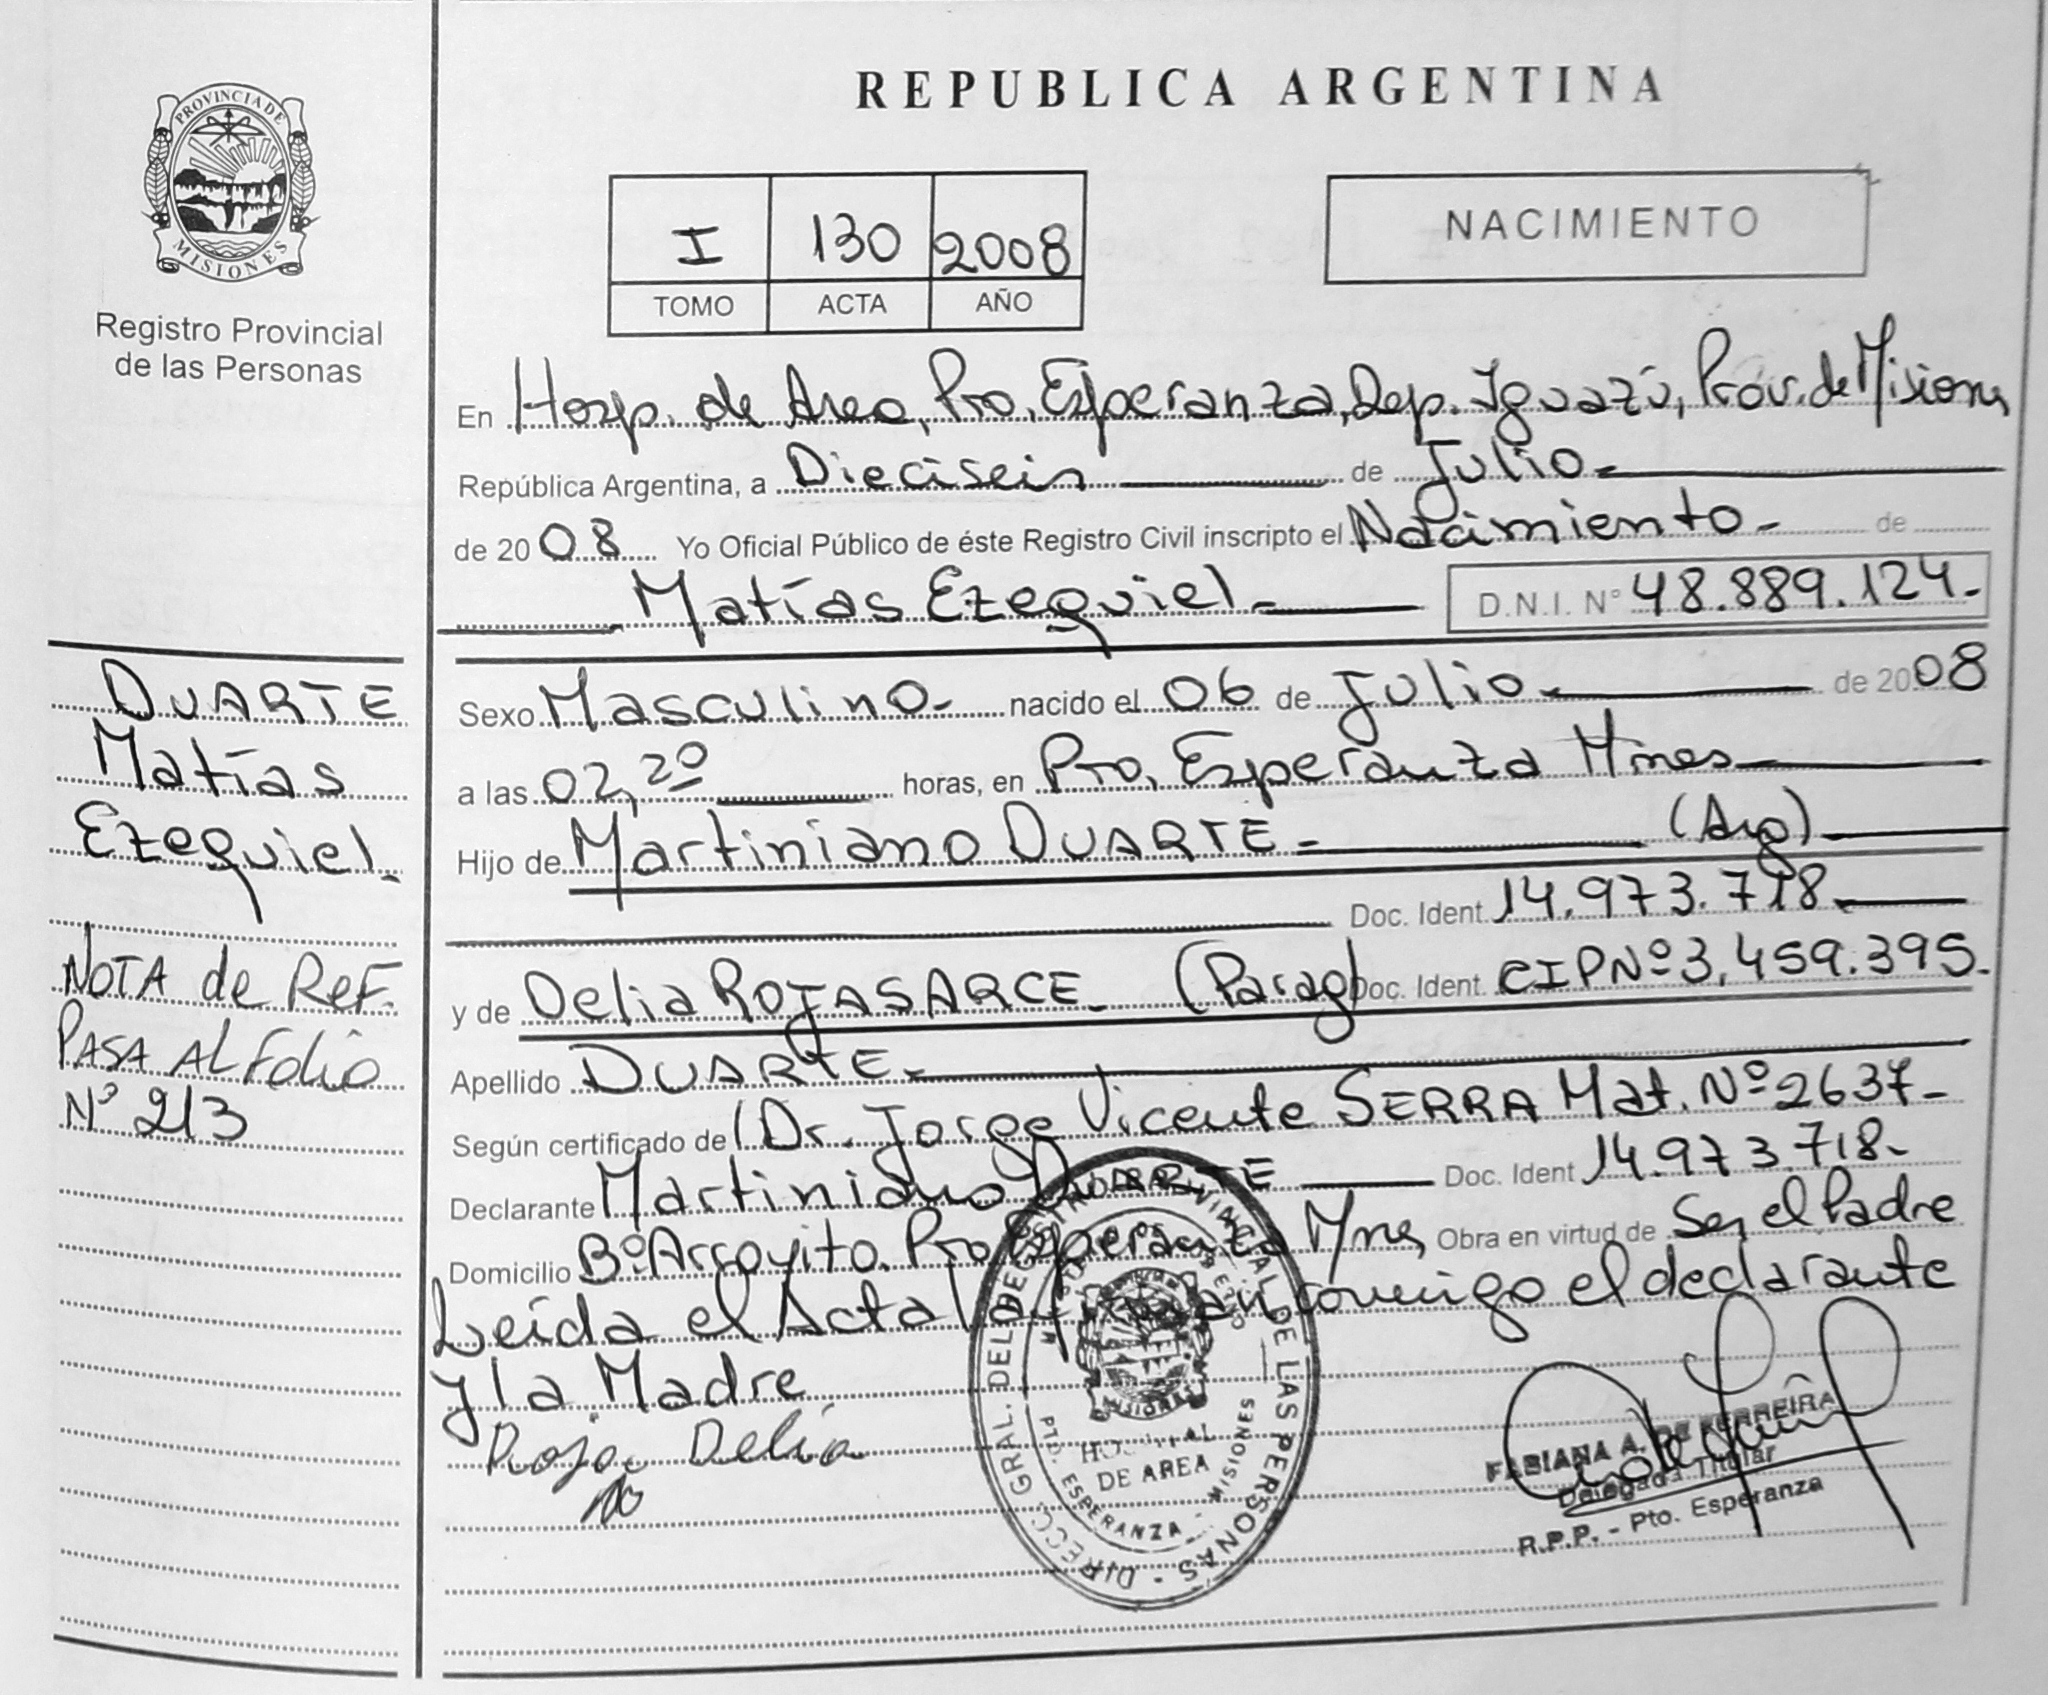 PROVINCIA DE
MISIONES
Registro Provincial
de las Personas
REPUBLICA ARGENTINA
I 130 2008
TOMO ACTA AÑO
NACIMIENTO
En Hosp. de Area, Pto. Esperanza, Dep. Iguazú, Prov. de Misiones
República Argentina, a Dieciseis de Julio-
de 2008 Yo Oficial Público de éste Registro Civil inscripto el Nacimiento- de
Matías Ezequiel- D.N.I. N° 48.889.124.-
DUARTE
Matías
Ezequiel-
NOTA de ReF.
PASA AL Folio
N° 213
Sexo Masculino- nacido el 06 de Julio- de 2008
a las 02,20 horas, en Pto. Esperanza Mnes
Hijo de Martiniano DUARTE- (Arg)
Doc. Ident. 14.973.718-
y de Delia ROJAS ARCE- (Parag) Doc. Ident. CIP Nº 3.459.395.
Apellido DUARTE-
Según certificado de Dr. Jorge Vicente SERRA Mat. Nº 2637-
Declarante Martiniano DUARTE Doc. Ident 14.973.718-
Domicilio Bº Arroyito. Pto Esperanza Mnes Obra en virtud de Ser el Padre
Leída el Acta la firman conmigo el declarante
y la Madre
Roja Delia
DIRECC. GRAL. DEL REGISTRO PROVINCIAL DE LAS PERSONAS -
MISIONES
HOSPITAL
DE AREA
PTO. ESPERANZA - MISIONES
FABIANA A. DE FERREIRA
Delegada Titular
R.P.P. - Pto. Esperanza